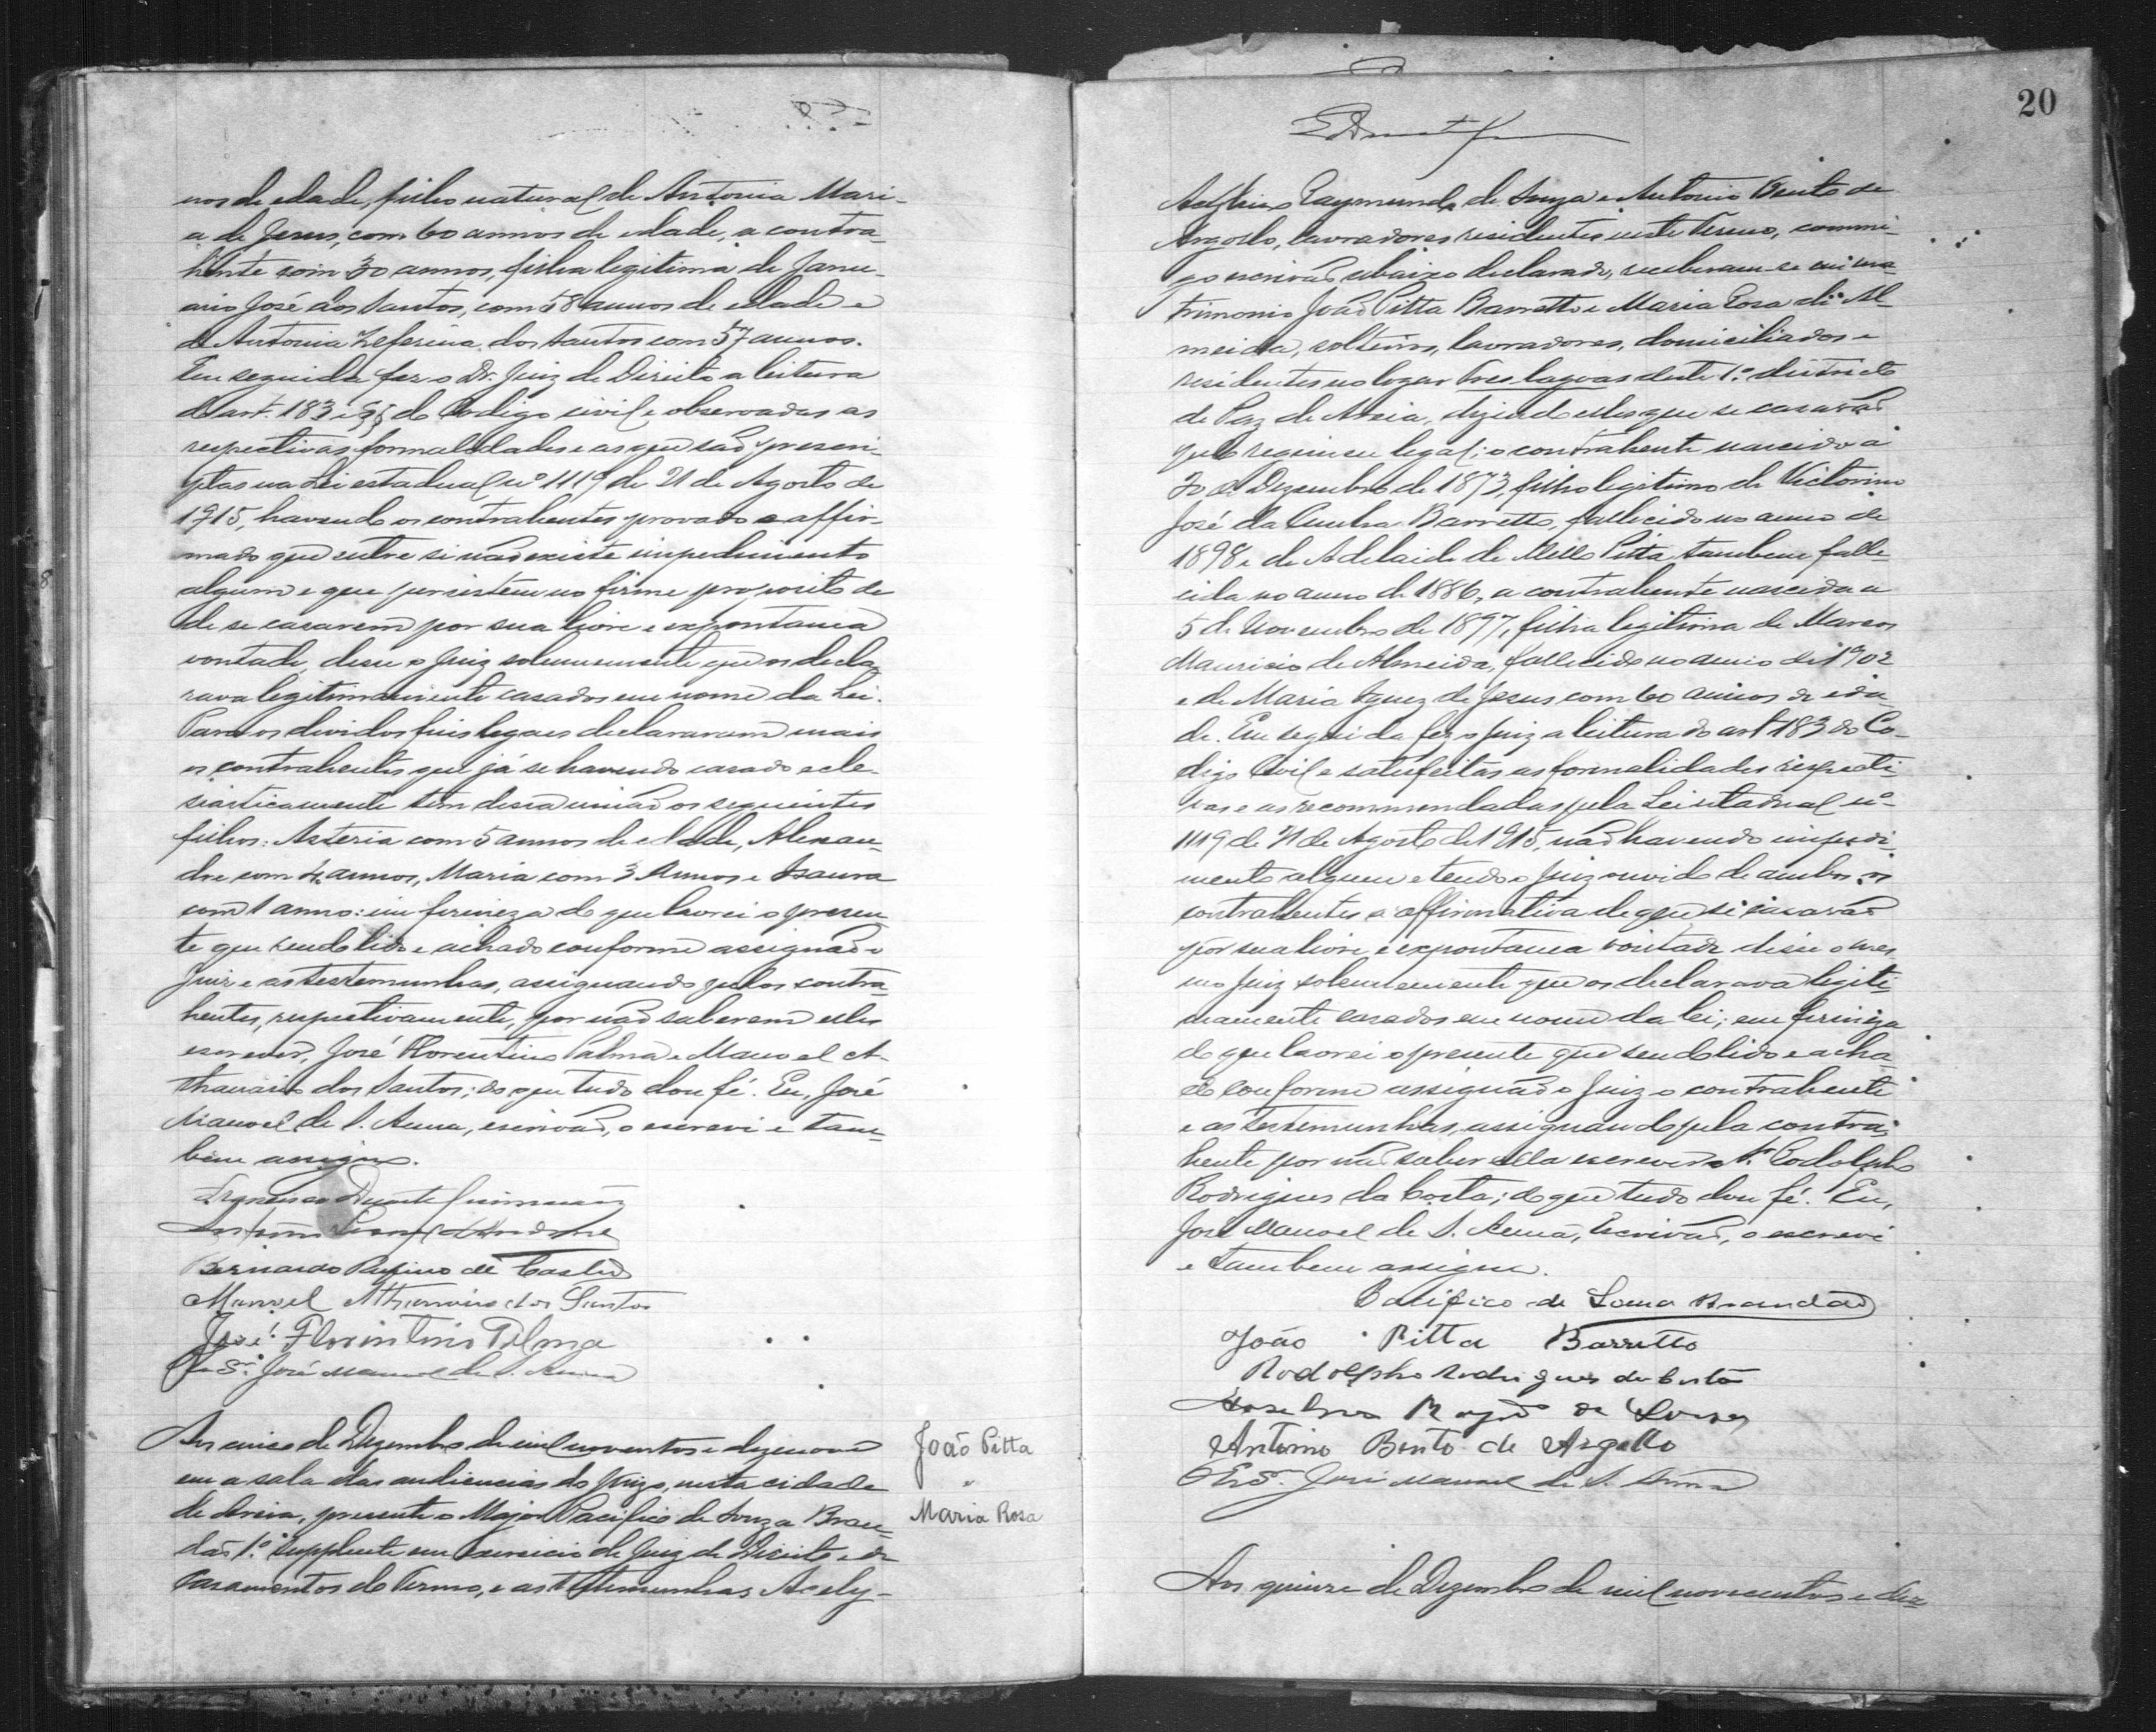 nos de edade, filho natural de Antonia Mari-
a de Jesus, com 60 annos de edade, a contra-
hente com 30 annos, filha legitima de Janu-
ario José dos Santos, com 58 annos de edade e
de Antonia Zeferina dos Santos com 57 annos.
Em seguida fez o Dr. Juiz de Direito a leitura
do art. 183 e §§ do Codigo civil e observadas as
respectivas formalidades e as que são prescri-
ptas na Lei estadual nº 1119 de 21 de Agosto de
1915, havendo os contrahentes provado e affir-
mado que entre si não existe impedimento
algum e que persistem no firme proposito de
de se casarem por sua livre e expontanea
vontade, disse o Juiz solemnemente que os decla
rava legitimamente casados em nome da Lei.
Para os devidos fins legaes declararam mais
os contrahentes que já se havendo casado ecle-
siasticamente têm dessa união os seguintes
filhos: Asteria com 5 annos de edade, Alexan-
dre com 4 annos, Maria com 3 annos e Isaura
com 1 anno: em firmeza do que lavrei o presen-
te que sendo lido e achado conforme assignão o
Juiz e as testemunhas, assignando pelos contra-
hentes, respectivamente, por não saberem elles
escrever, José Florentino Palma e Manoel A-
thanasio dos Santos; do que tudo dou fé. Eu, José
Manoel de S. Anna, escrivão, o escrevi e tam-
bem assigno.
Francisco Duarte Guimarães
Bernardo Rufino de Castro
Manoel Athanasio dos Santos
José Florintino Palma
O Esc.ᵐ José Manoel de S. Anna
Aos cinco de Dezembro de mil noventos e dezenove
em a sala das audiencias do Juizo, nesta cidade
de Areia, presente o Major Pacifico de Souza Bran-
dão 1º supplente em exercicio de Juiz de Direito e de
Casamentos do Termo, e as testemunhas Acely-
João Pitta
"
Maria Rosa
20
Raymundo de Souza e Antonio Bento de
Argollo, lavradores residentes neste Termo, commi-
go escrivão abaixo declarado, receberam-se em ma-
trimonio João Pitta Barretto e Maria Rosa de Al-
meida, solteiros, lavradores, domiciliados e
residentes no logar Tres lagoas deste 1º districto
de Paz de Areia, dizendo elles que se casarão
pelo regimem legal; o contrahente nascido a
20 de Dezembro de 1873, filho legitimo de Victorino
José da Cunha Barretto, fallecido no anno de
1898 e de Adelaide de Mello Pitta, tambem falle-
cida no anno de 1886, a contrahente nascida a
5 de Novembro de 1897, filha legitima de Marcos
Mauricio de Almeida, fallecido no anno de 1902
e de Maria Ignez de Jesus com 60 annos de eda-
de. Em seguida fez o Juiz a leitura do art 183 do Co-
digo Civil e satisfeitas as formalidades respecti-
vas e as recommendadas pela Lei estadual nº
1119 de 21 de Agosto de 1915, não havendo impedi-
mento algum e tendo o Juiz ouvido de ambos os
contrahentes a affirmativa de que si casarão
por sua livre e expontanea vontade disse o mes-
mo Juiz solemnemente que os declarava legiti-
mamente casados em nome da lei; em firmeza
do que lavrei o presente que sendo lido e acha-
do conforme assignão o Juiz o contrahente
e as testemunhas, assignando pela contra-
hente por não saber ella escrever Rodolpho
Rodrigues da Costa; do que tudo dou fé. Eu,
José Manoel de S. Anna, Escrivão, o escrevi
e tambem assigno.
Pacifico de Souza Brandão
João Pitta Barretto
Rodolpho Rodrigues da Costa
Antonio Bento de Argollo
O Esc.ᵐ José Manoel de S. Anna
Aos quinze de Dezembro de mil novecentos e dez-